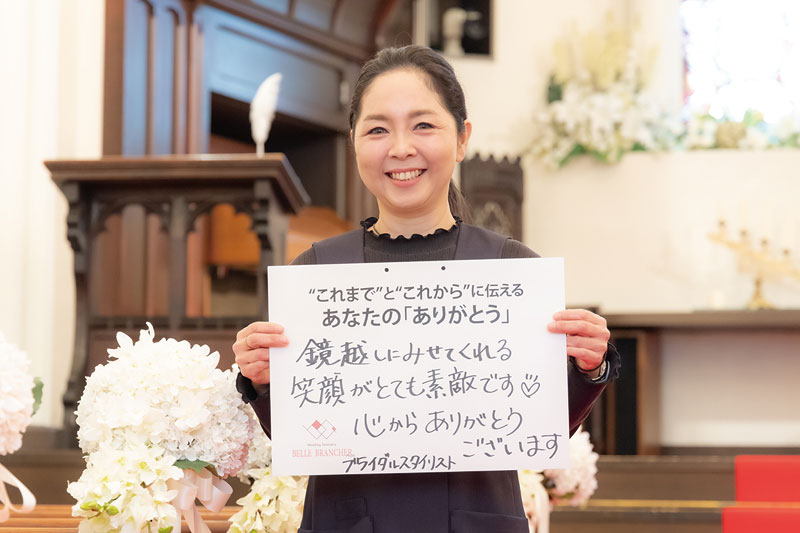 “これまで”と“これから”に伝える
あなたの「ありがとう」
鏡越しにみせてくれる
笑顔がとても素敵です♡
心からありがとう
ございます
BELLE BRANCHER
ブライダルスタイリスト